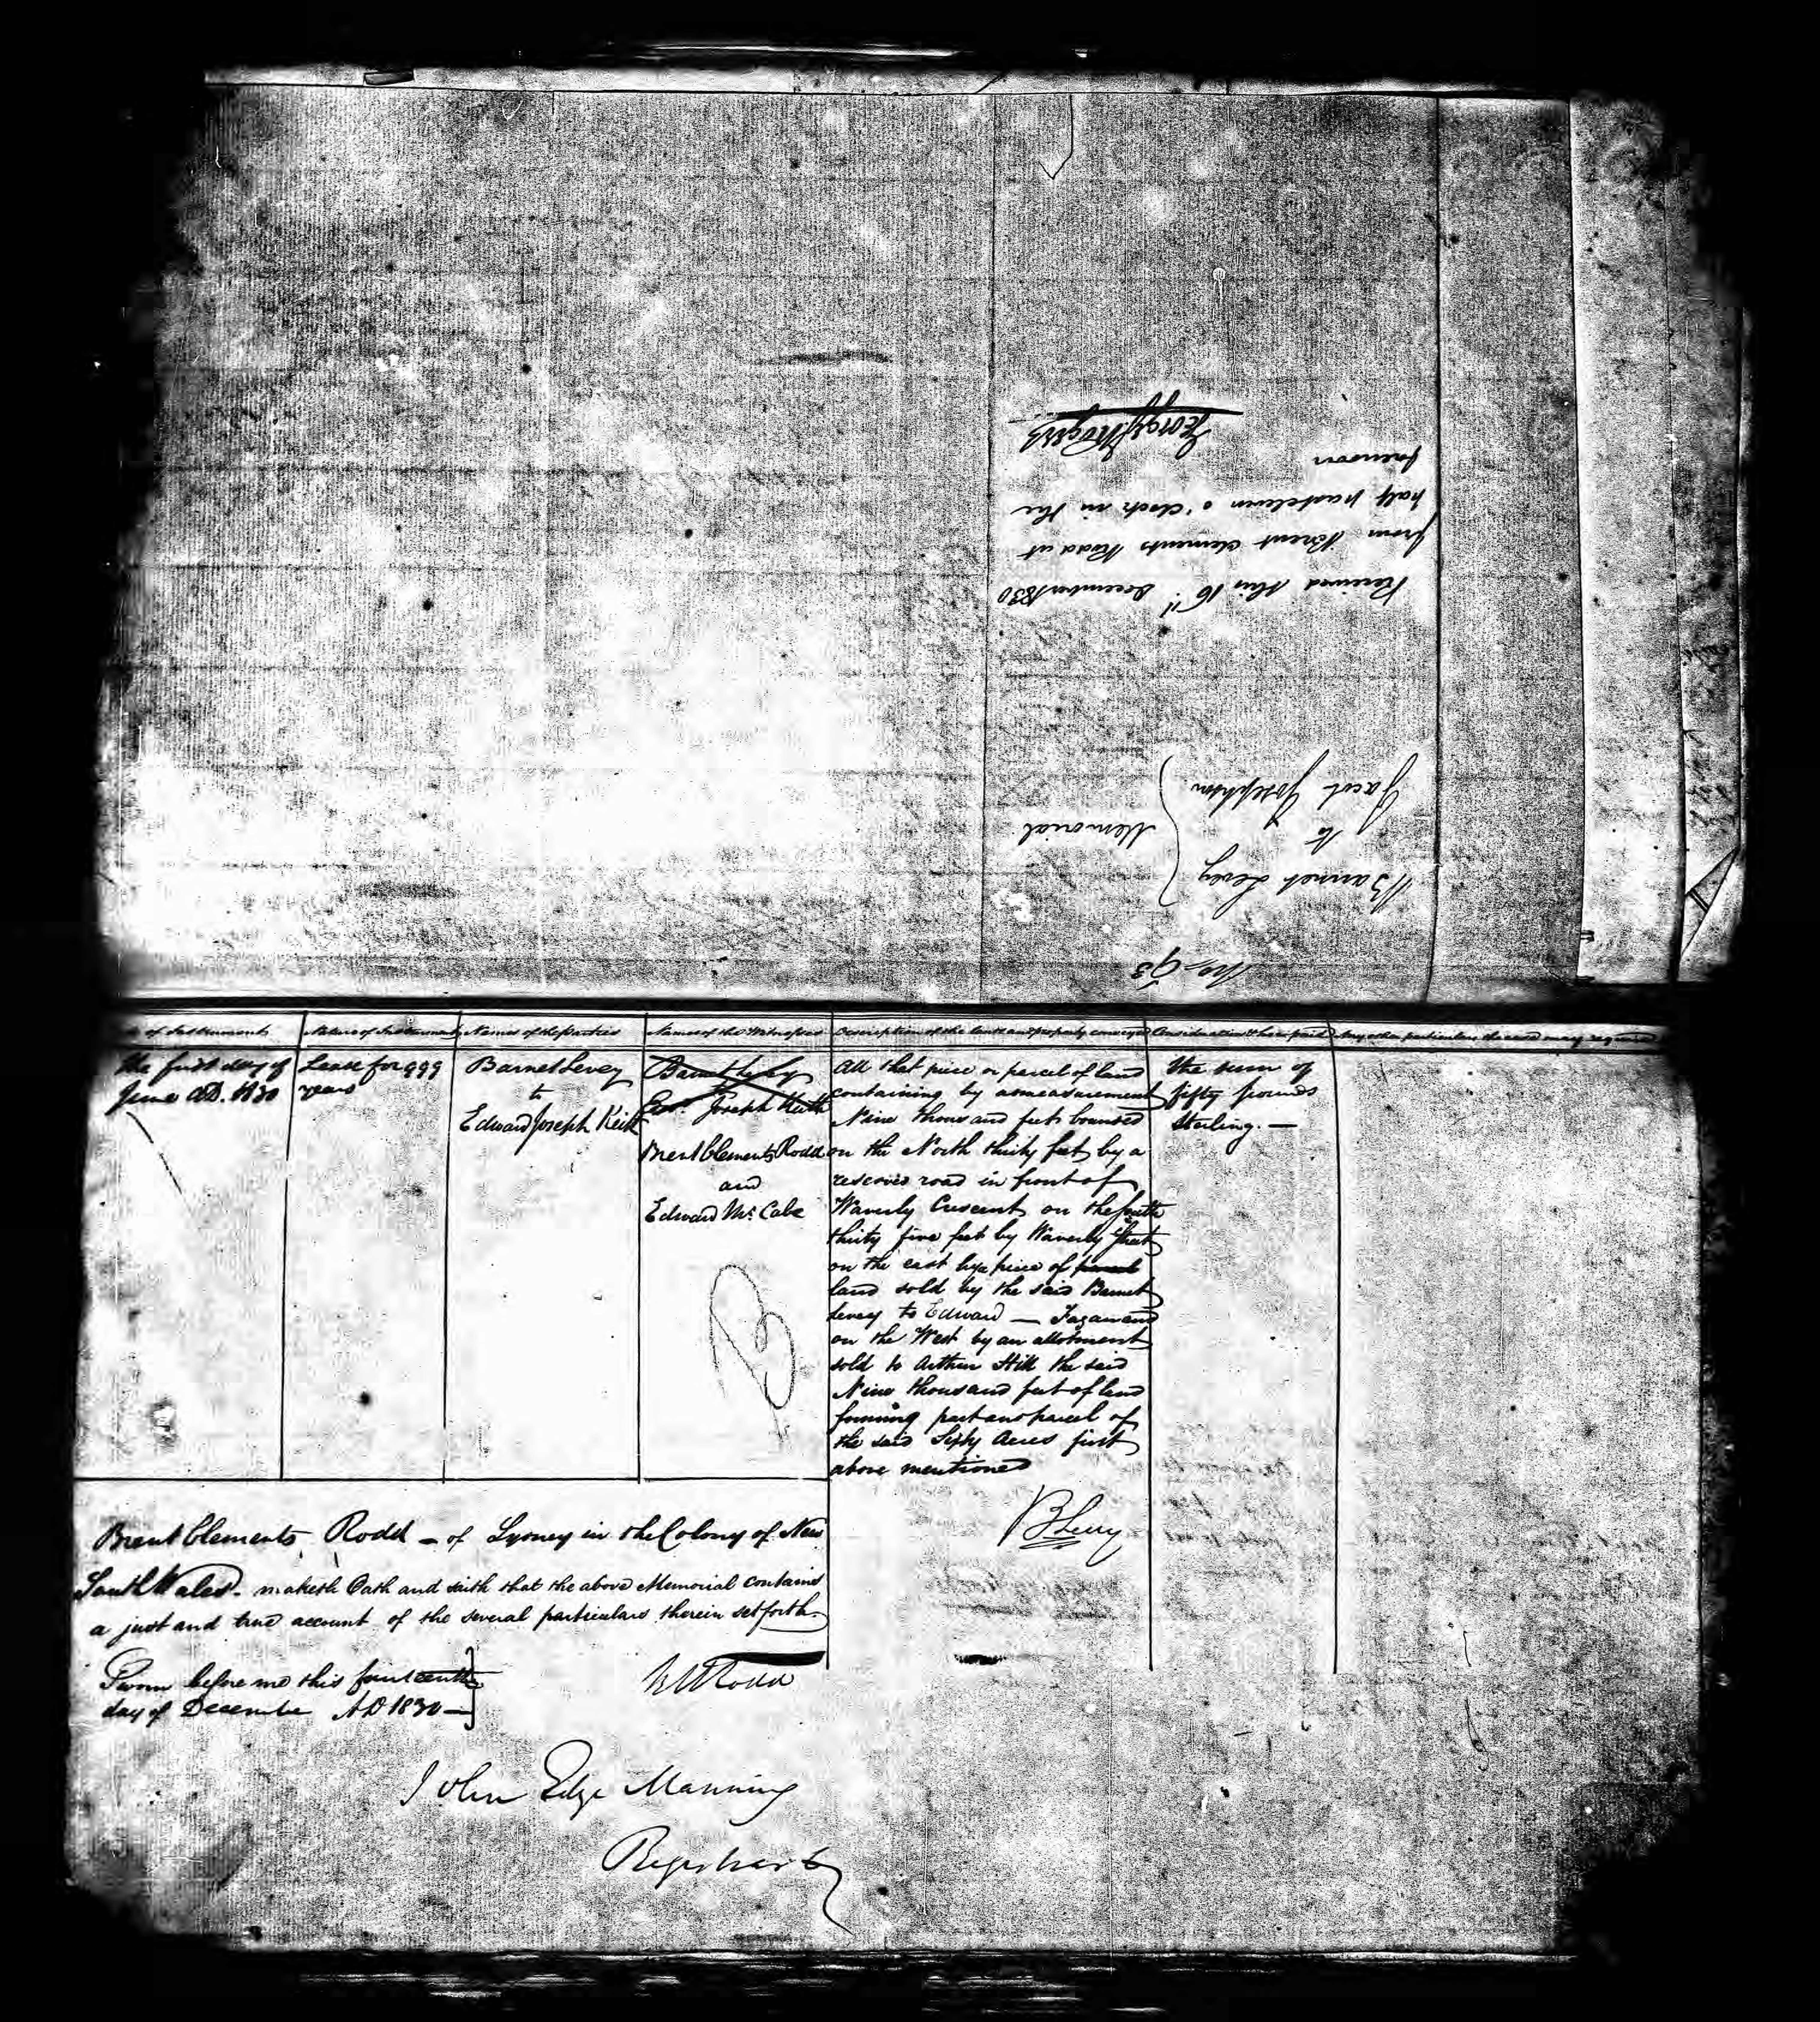 No 93
Barnet Levey
to
Jacob Josephson
Memorial
Received this 16th December 1830
from Brent Clements Rodd at
half past eleven o'clock in the
forenoon
of Instrument
Nature of Instrument
Names of the Parties
Names of the Witnesses
Description of the lands and property conveyed
Consideration & how paid
Any other particulars the case may require
the first day of
June A.D. 1830
Lease for 999
years
Barnet Levey
to
Edward Joseph Keith
Barnet Levey
to
Edwd. Joseph Keith
Brent Clements Rodd
and
Edward McCabe
All that piece or parcel of land
containing by admeasurement
Nine thousand feet bounded
on the North thirty feet by a
reserved road in front of
Waverly Crescent on the South
thirty five feet by Waverly Street
on the east by a piece of
land sold by the said Barnet
Levey to Edward — Fagan and
on the West by an allotment
sold to Arthur Hill the said
Nine thousand feet of land
forming part and parcel of
the said Sixty Acres first
above mentioned
the sum of
fifty pounds
Sterling. —
B Levey
Brent Clements Rodd – of Sydney in the Colony of New
South Wales – maketh Oath and saith that the above Memorial contains
a just and true account of the several particulars therein set forth.
Sworn before me this fourteenth
day of December AD 1830 —
Rodd
John Edye Manning
Registrar